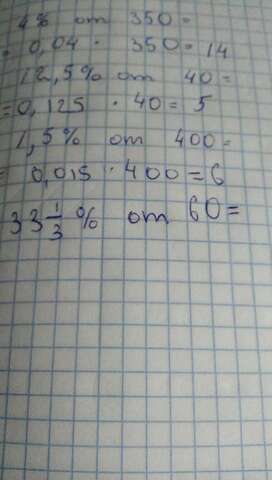 4% от 350 =
= 0,04 · 350 = 14
12,5% от 40 =
= 0,125 · 40 = 5
1,5% от 400 =
= 0,015 · 400 = 6
33 1/3 % от 60 =